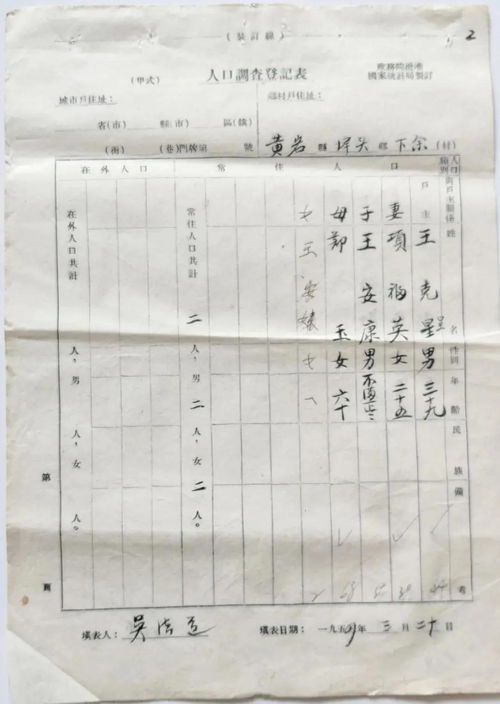 (裝訂線)
2
(甲式)
人口調查登記表
政務院批准
國家統計局製訂
城市戶住址：
鄉村戶住址：
省(市) 縣(市) 區(鎮)
(街) (巷)門牌第 號
黃岩 縣 鄉 下余 (村)
在外人口
常住人口
人口類別
與戶主關係
姓名
性別
年齡
民族
備考
戶主 王克星 男 三十九
妻 項福英 女 二十五
子 王安康 男
母 鄭 玉 女 六十
女 王安娣 女
常住人口共計 二 人，男 二 人，女 二 人。
在外人口共計 人，男 人，女 人。
第 頁
填表人： 吳
填表日期： 一九五四年 三 月 二十 日